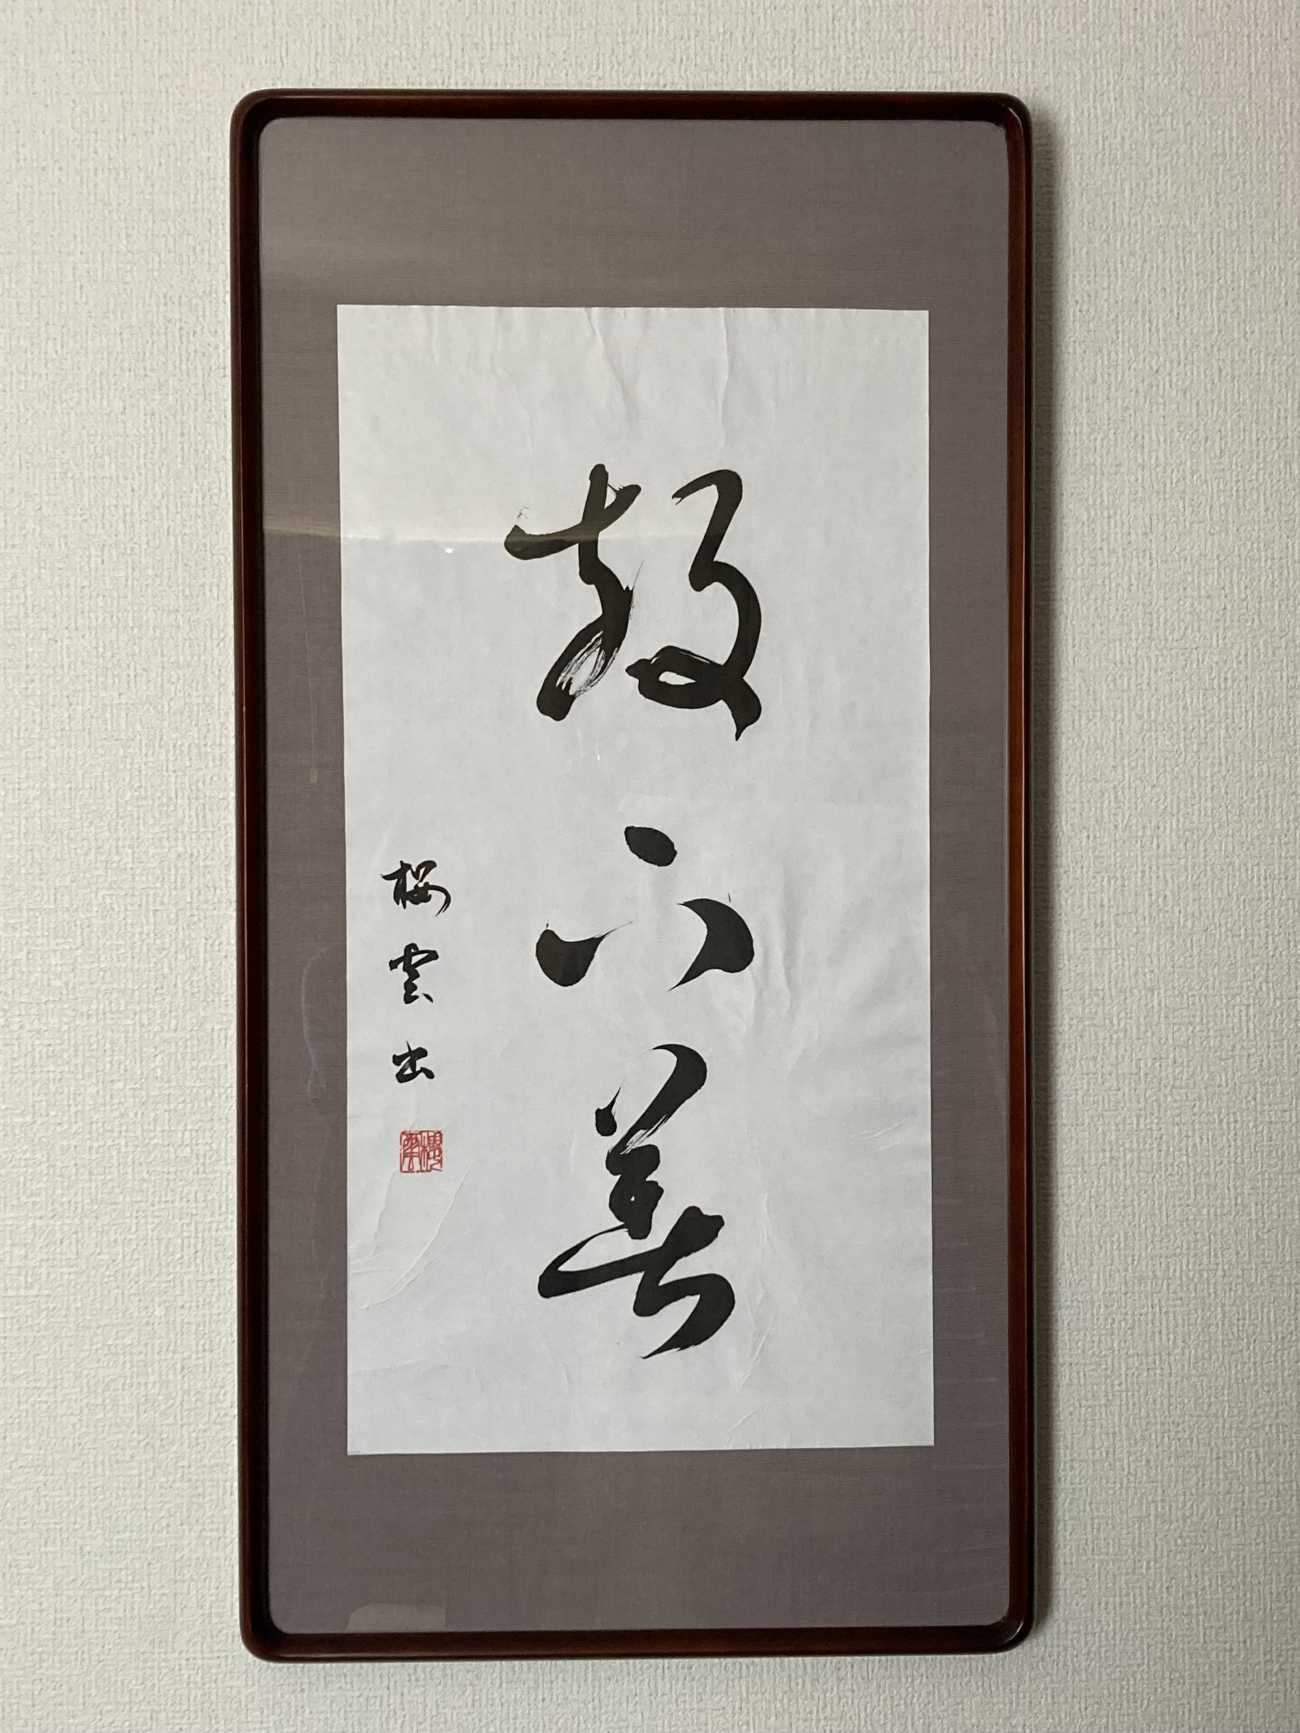 放下着
桜雲